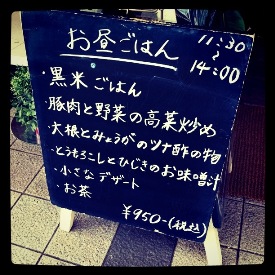 お昼ごはん
11:30
〜
14:00
・黒米ごはん
・豚肉と野菜の高菜炒め
・大根とみょうがのツナ酢の物
・とうもろこしとひじきのお味噌汁
・小さなデザート
・お茶
¥950-(税込)